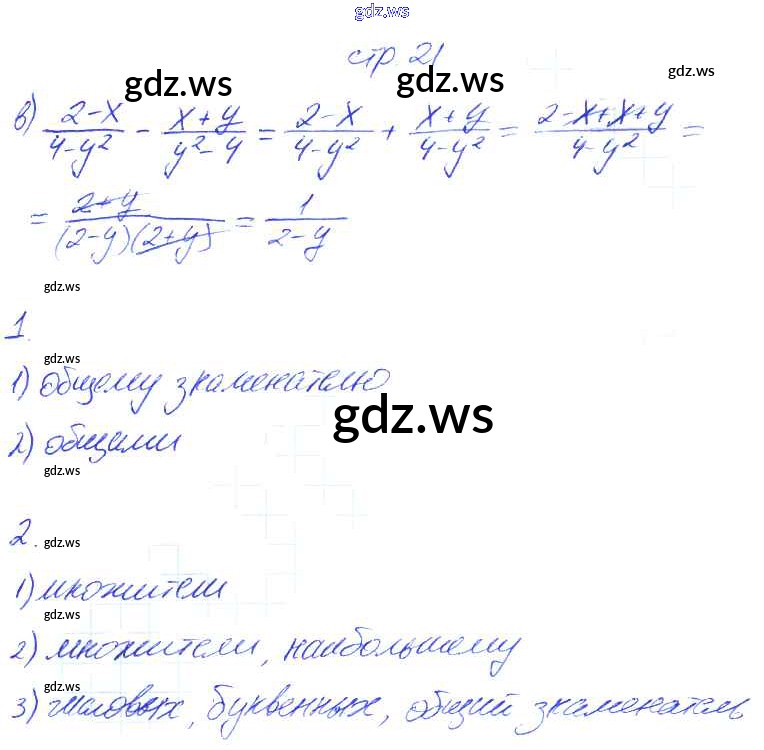 gdz.ws
стр 21
gdz.ws gdz.ws gdz.ws
в) (2-x)/(4-y²) - (x+y)/(y²-4) = (2-x)/(4-y²) + (x+y)/(4-y²) = (2-x+x+y)/(4-y²) =
= (2+y)/((2-y)(2+y)) = 1/(2-y)
gdz.ws
1.
gdz.ws
1) общему знаменателю
gdz.ws
2) общими
gdz.ws
2.
gdz.ws
1) множители
gdz.ws
2) множители, наибольшему
gdz.ws
3) числовых, буквенных, общий знаменатель